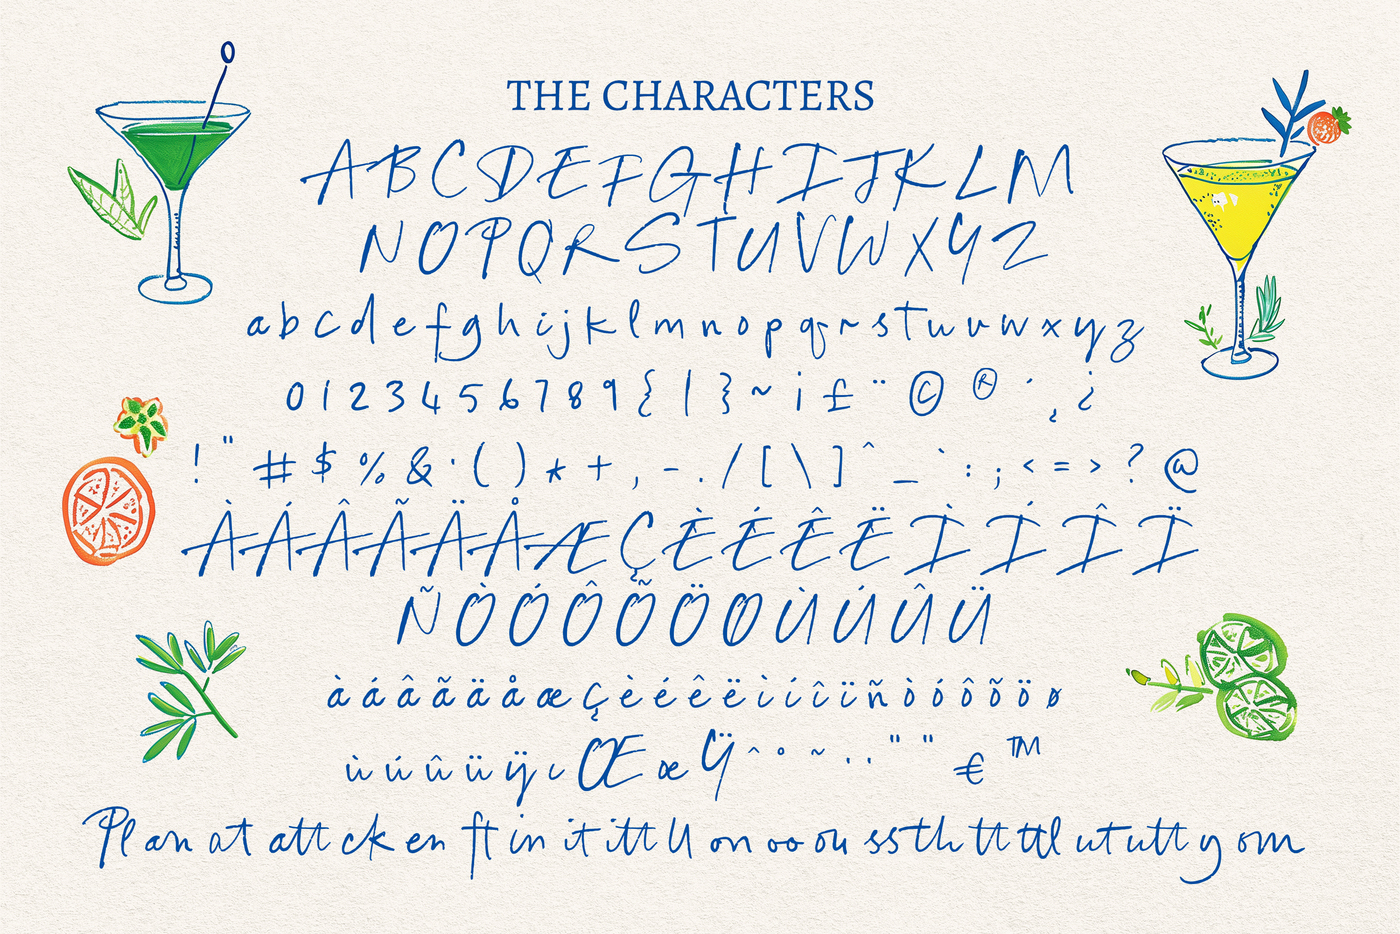 THE CHARACTERS
A B C D E F G H I J K L M
N O P Q R S T U V W X Y Z
a b c d e f g h i j k l m n o p q r s t u v w x y z
0 1 2 3 4 5 6 7 8 9 { | } ~ ¡ £ ¨ © ® ´ ¸ ¿
! " # $ % & · ( ) * + , - . / [ \ ] ^ _ ` : ; < = > ? @
À Á Â Ã Ä Å Æ Ç È É Ê Ë Ì Í Î Ï
Ñ Ò Ó Ô Õ Ö Ø Ù Ú Û Ü
à á â ã ä å æ ç è é ê ë ì í î ï ñ ò ó ô õ ö ø
ù ú û ü ÿ ı Œ œ Ÿ ˆ ° ~ . . " " € ™
Pl an at att ck en ft in it itt ll on oo ou ss th tt ttl ut utt y om